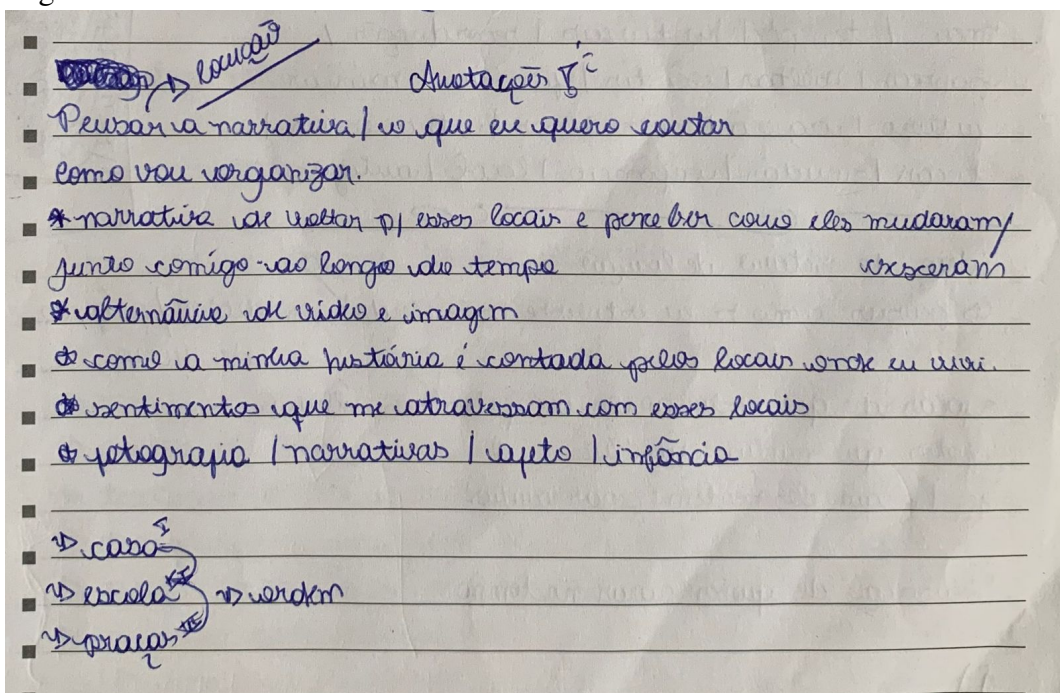 → locução
Anotações
Pensar a narrativa / o que eu quero contar
como vou organizar.
* narrativa de voltar p/ esses locais e perceber como eles mudaram/
junto comigo ao longo do tempo cresceram
* alternância de vídeo e imagem
* como a minha história é contada pelos locais onde eu vivi.
* sentimentos que me atravessam com esses locais
* fotografia / narrativas / afeto / infância
→ casa I
→ escola → ordem
→ praças